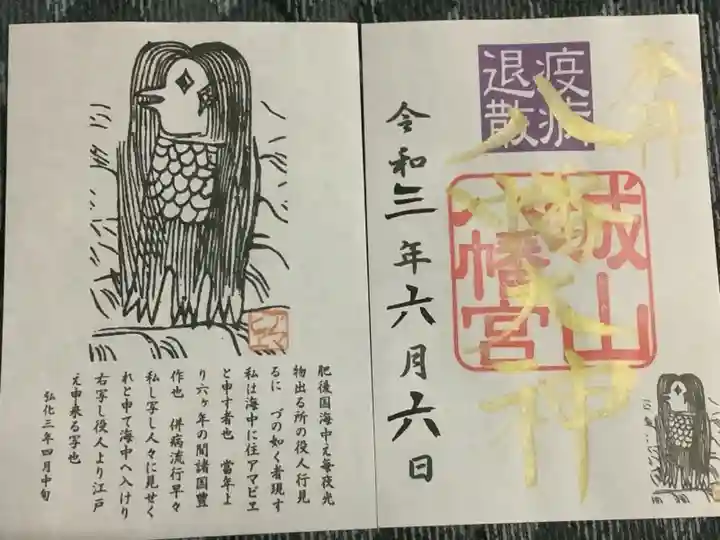 奉拝
疫病
退散
八幡大神
城山
八幡宮
令和三年六月六日
肥後国海中え毎夜光
物出る所の役人行見
るに づの如く者現す
私は海中に住アマビエ
と申す者也 當年よ
り六ヶ年の間諸国豊
作也 併病流行早々
私し写し人々に見せく
れと申て海中へ入けり
右写し役人より江戸
え申来る写也
弘化三年四月中旬